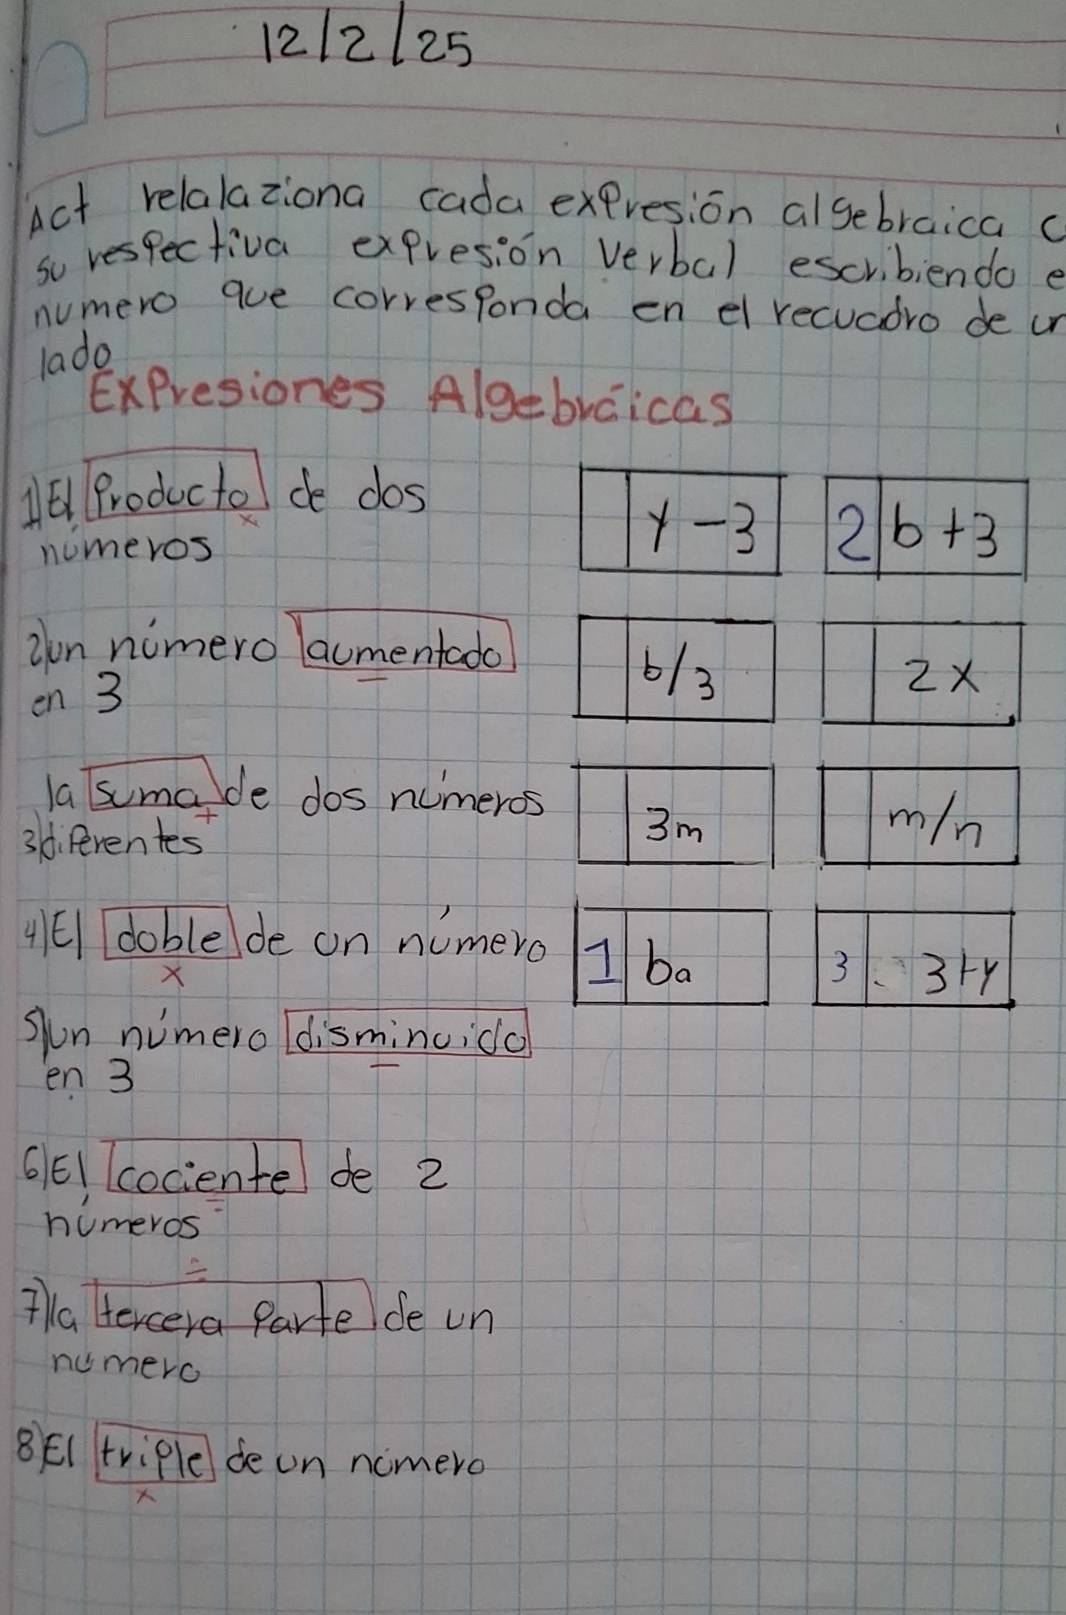 12/2/25
Act relalaziona cada expresión algebraica c
su respectiva expresión verbal escribiendo e
numero que corresponda en el recuadro de un
lado
Expresiones Algebráicas
1) El Producto de dos
x
números
y - 3
2 b + 3
2) un número aumentado
en 3
b/3
2x
la suma de dos números
+
3) diferentes
3m
m/n
4) El doble de un número
x
1 ba
3 3+y
5) un número disminuido
–
en 3
6) El cociente de 2
÷
números
÷
7) la tercera Parte de un
numero
8) El triple de un número
x